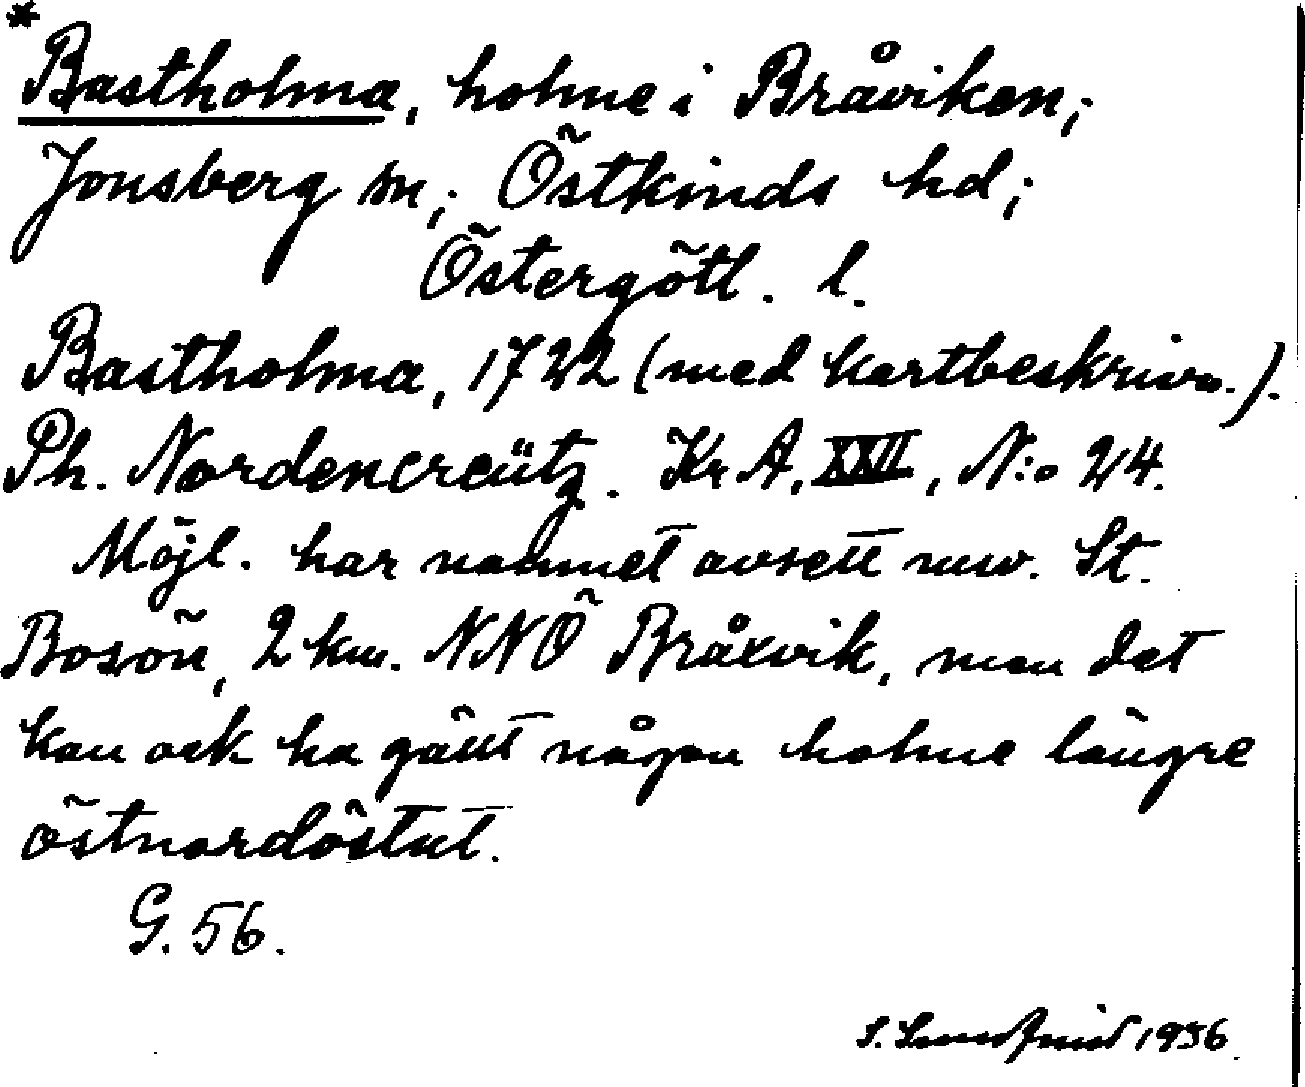 *Bastholma, holme i Bråviken;
Jonsberg sn; Östkinds hd;
Östergötl. l.
Bastholma, 1722 (med kartbeskrivn.).
Ph. Nordencreütz. Kr A, XXII, N:o 24.
Möjl. har namnet avsett nuv. St.
Bosön, 2 km. NNÖ Bråxvik, men det
kan ock ha gällt någon holme längre
östnordöstut.
G. 56.
S. 1956.